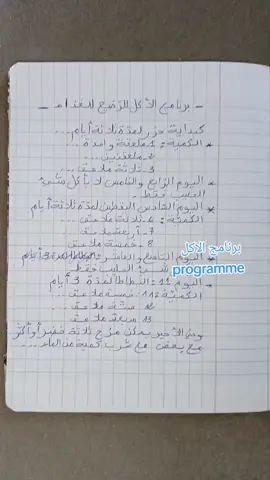 - برنامج الأكل للرضع للغذاء -
كبداية جزر لمدة ثلاثة أيام...
* الكمية: 1 ملعقة واحدة...
2 ملعقتين...
3 ثلاثة ملاعق...
* اليوم الرابع والخامس لا يأكل شيء
الحليب فقط
* اليوم السادس اليقطين لمدة ثلاثة أيام
الكمية: 6 ثلاثة ملاعق...
7 أربعة ملاعق
8 خمسة ملاعق
* اليوم التاسع والعاشر
الحليب فقط
برنامج الاكل
programme
* اليوم 11: البطاطا لمدة 3 أيام
الكمية: 11 خمسة ملاعق
12 ستة ملاعق
13 سبعة ملاعق
وفي الأخير يمكن مزج ثلاثة خضر أو أكثر
مع بعض مع شرب كمية من الماء...